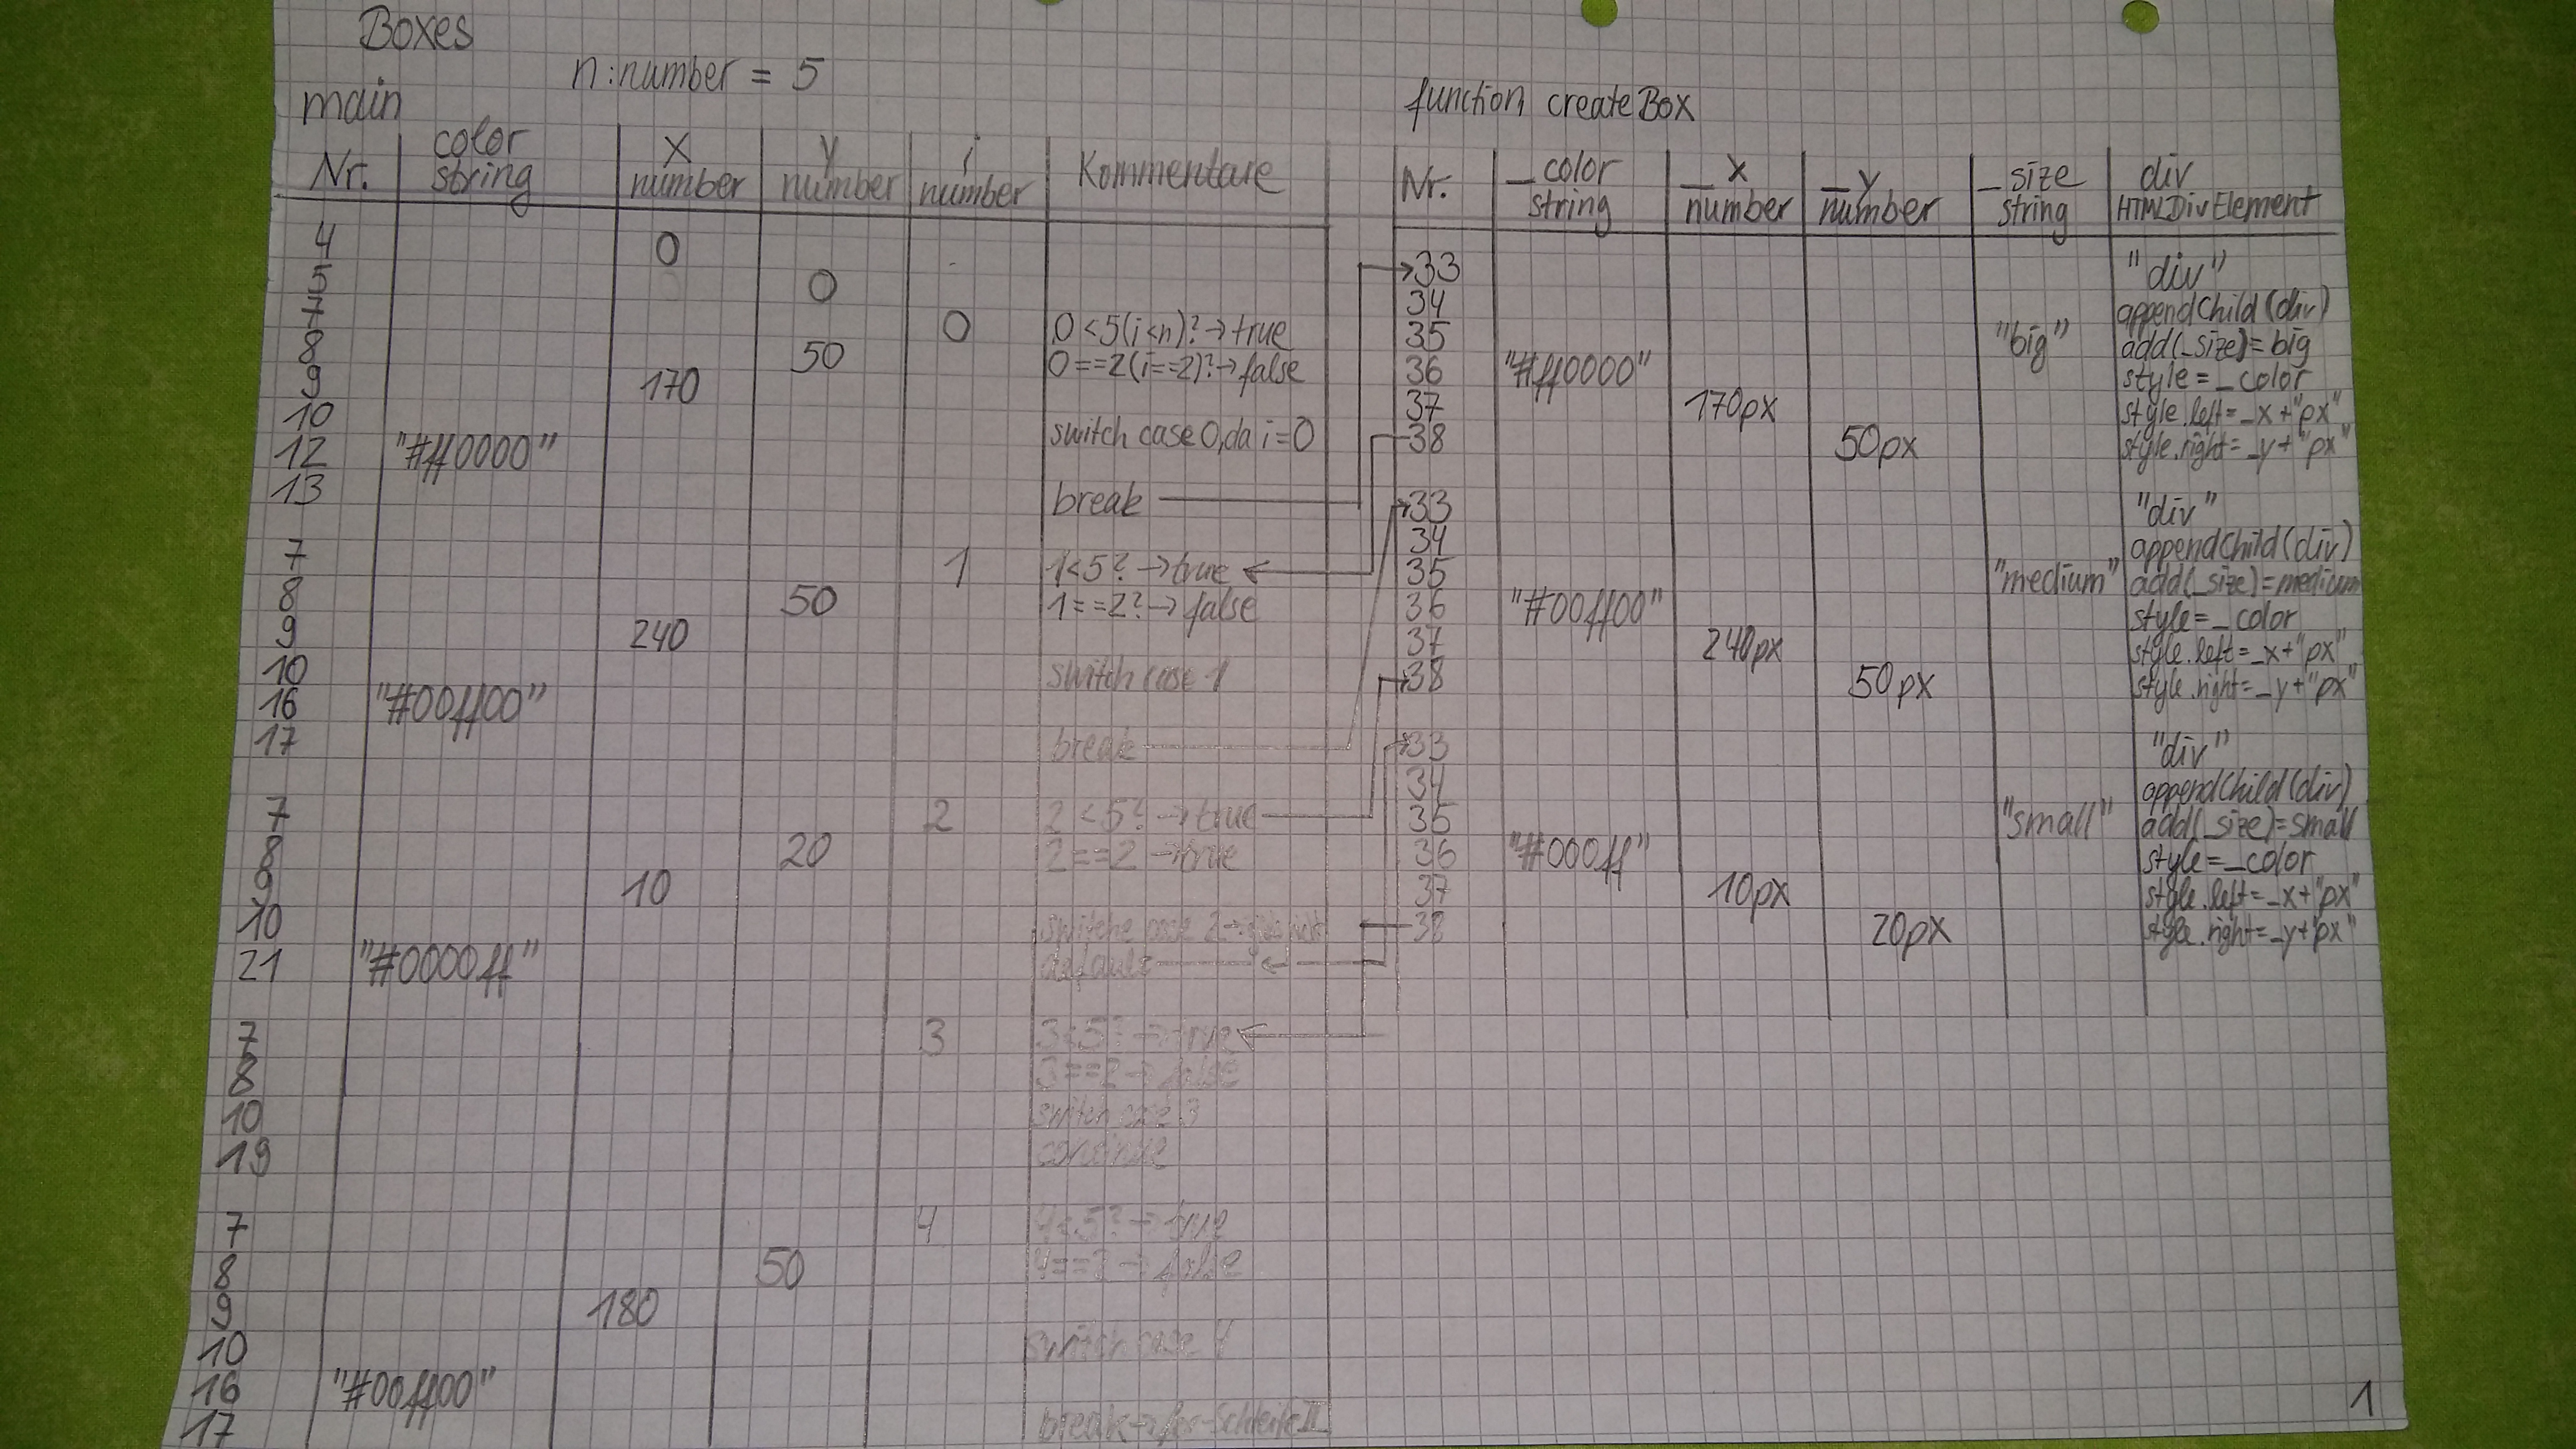 Boxes
n:number = 5
main
Nr. color string x number y number i number Kommentare
4 0
5 0
7 0 0<5(i<n)?→true
8 50 0==2(i==2)?→false
9 170
10 switch case 0, da i=0
12 "#ff0000"
13 break
7 1 1<5? →true
8 50 1==2?→false
9 240
10 switch case 1
16 "#00ff00"
17 break
7 2 2<5? →true
8 20 2==2 →true
9 10
10 switche case 2→
21 "#0000ff" default
7 3 3<5? →true
8 3==2→false
10 switch case 3
19 continue
7 4 4<5?→true
8 50 4==2→false
9 180
10 switch case 4
16 "#00ff00"
17 break→for-Schleife II
function createBox
Nr. _color string _x number _y number _size string div HTMLDivElement
33 "div"
34 appendChild(div)
35 "big" add(_size)=big
36 "#ff0000" style=_color
37 170px style.left=_x+"px"
38 50px style.right=_y+"px"
33 "div"
34 appendChild(div)
35 "medium" add(_size)=medium
36 "#00ff00" style=_color
37 240px style.left=_x+"px"
38 50px style.right=_y+"px"
33 "div"
34 appendChild(div)
35 "small" add(_size)=small
36 "#000ff" style=_color
37 10px style.left=_x+"px"
38 20px style.right=_y+"px"
1